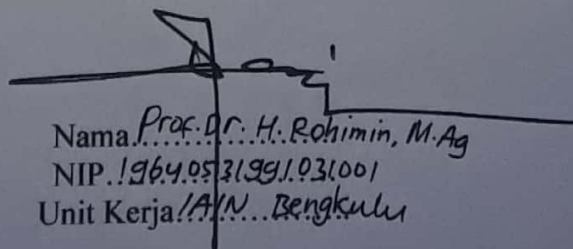 Nama Prof. Dr. H. Rohimin, M.Ag
NIP. 19640531991031001
Unit Kerja IAIN Bengkulu